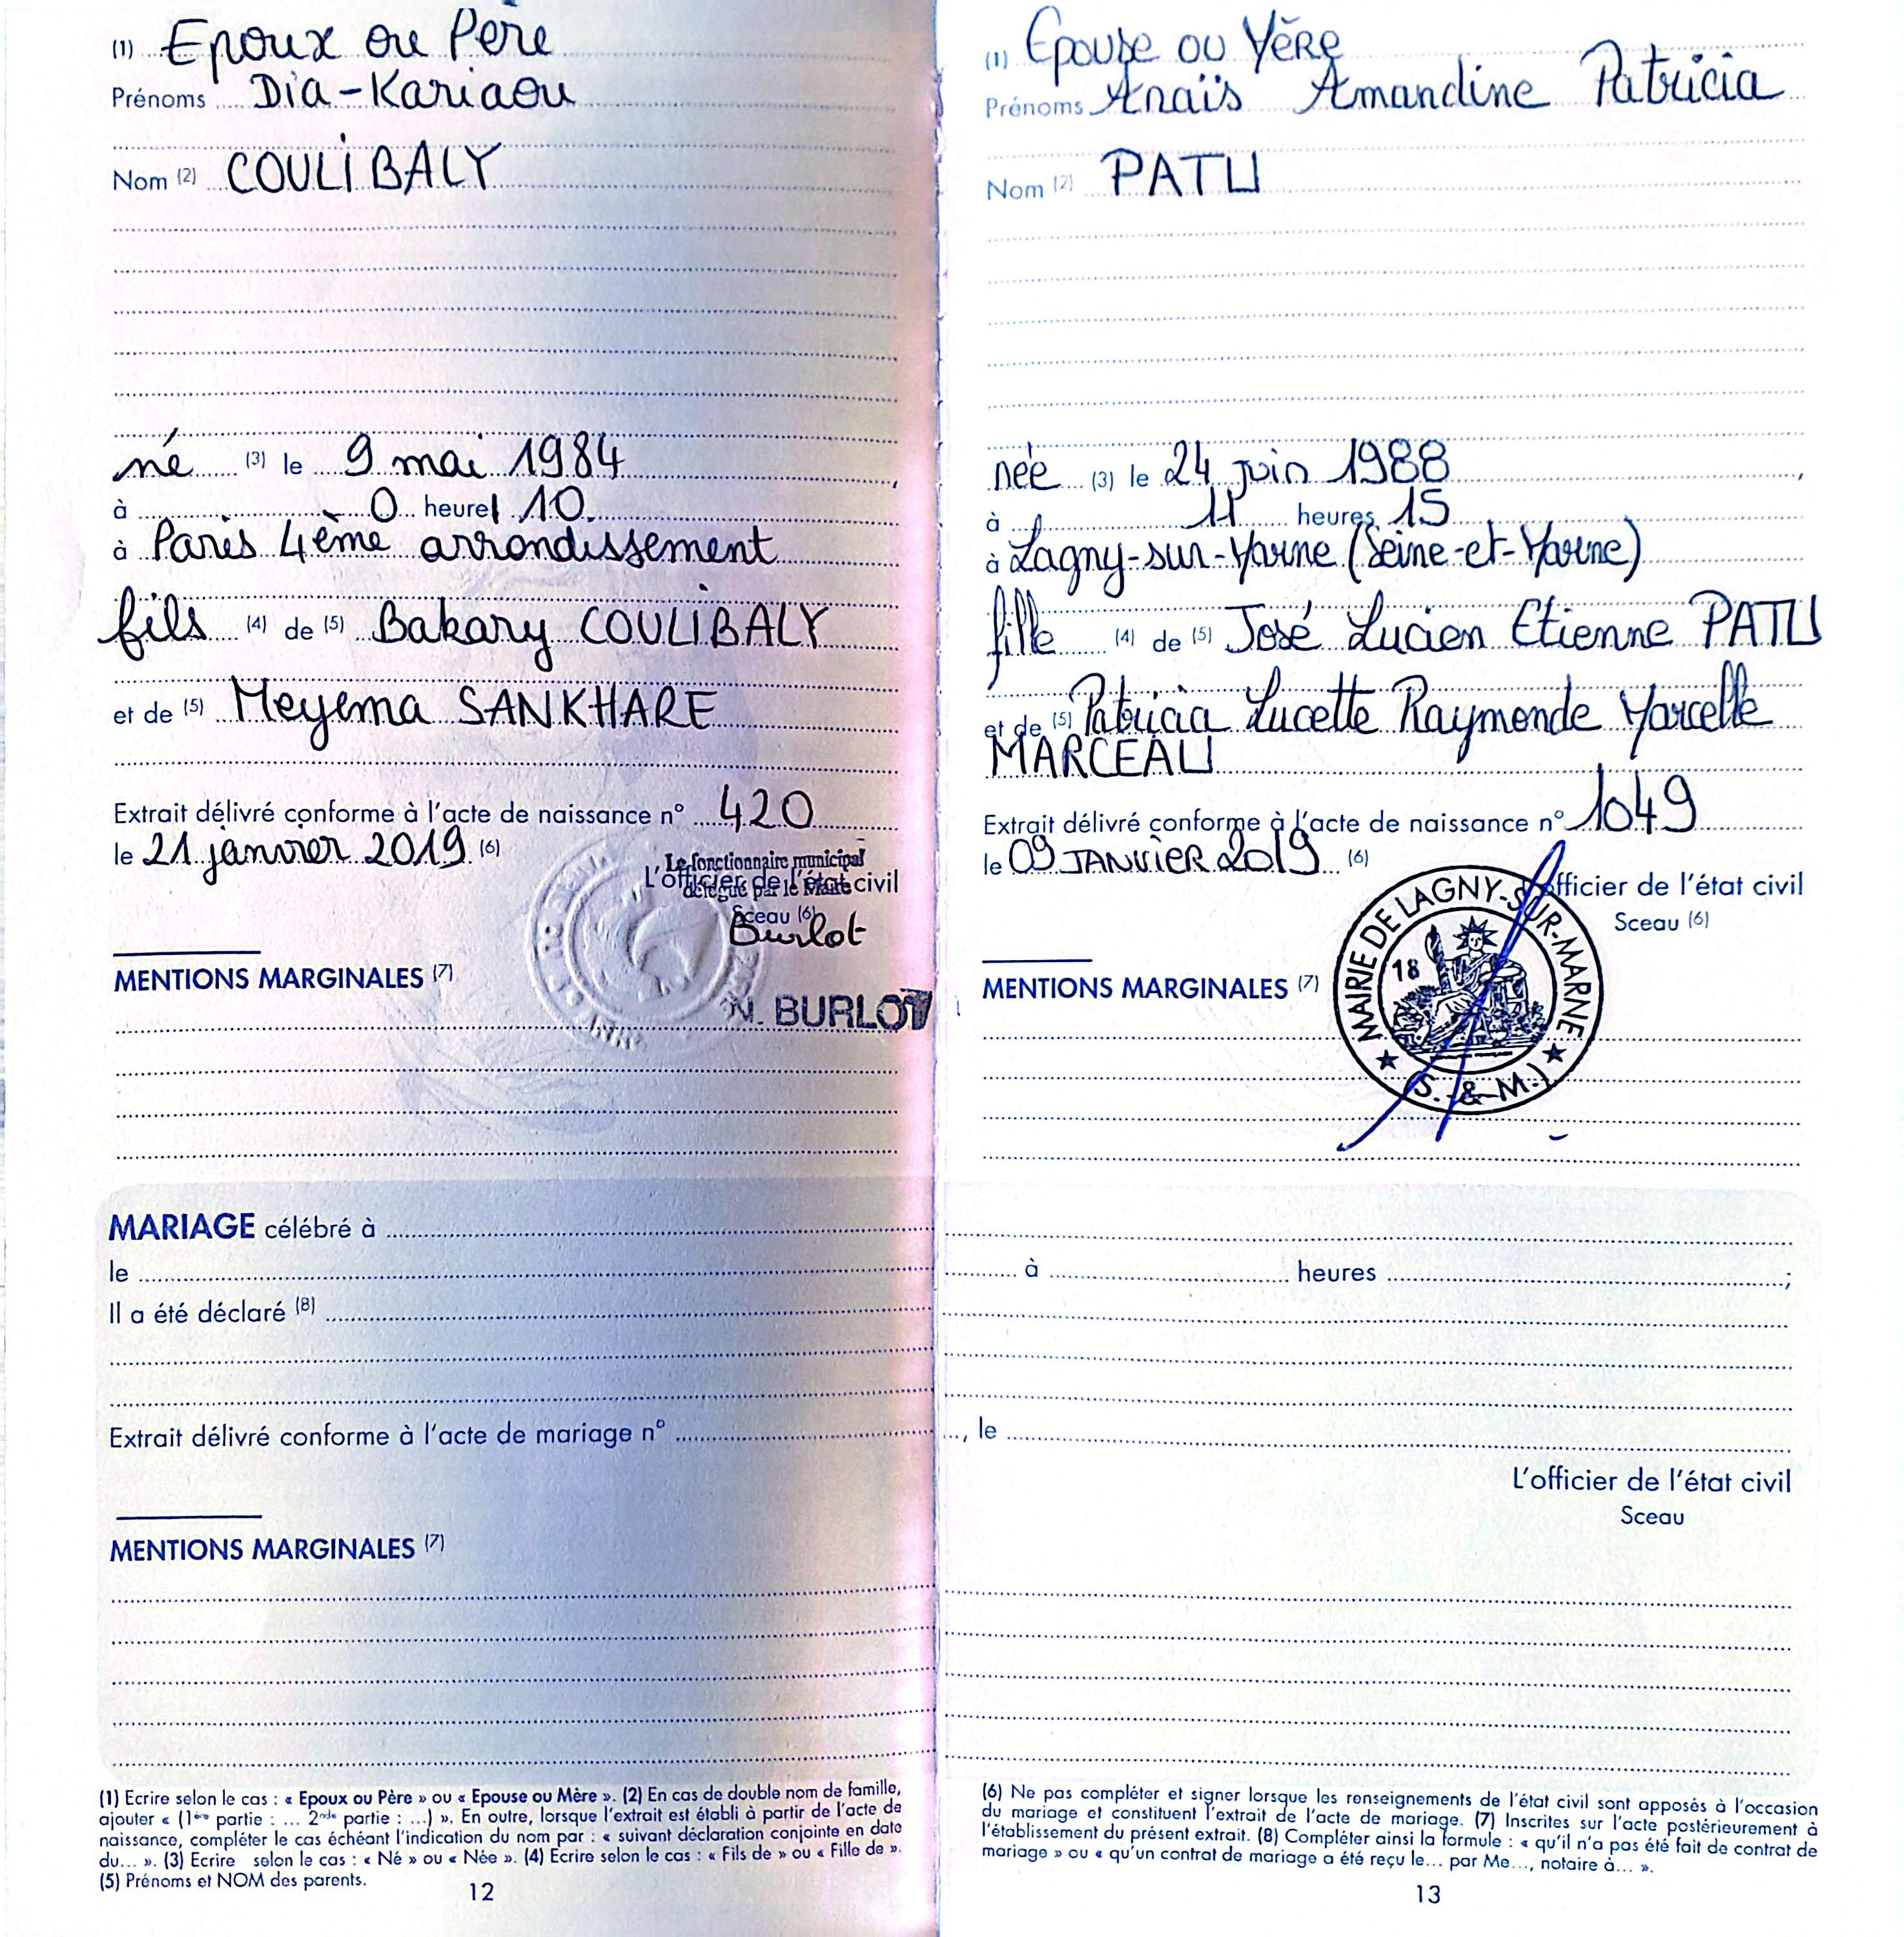 (1) Epoux ou Père
Prénoms Dia-Kariaou
Nom (2) COULIBALY
né (3) le 9 mai 1984
à 0 heure 10
à Paris 4ème arrondissement
fils (4) de (5) Bakary COULIBALY
et de (5) Meyema SANKHARE
Extrait délivré conforme à l'acte de naissance n° 420
le 21 janvier 2019 (6)
Le fonctionnaire municipal
délégué par le Maire
L'officier de l'état civil
Sceau (6)
Burlot
N. BURLOT
MENTIONS MARGINALES (7)
(1) Epouse ou Mère
Prénoms Anaïs Amandine Patricia
Nom (2) PATU
née (3) le 24 juin 1988,
à 11 heures 15
à Lagny-sur-Marne (Seine-et-Marne)
fille (4) de (5) José Lucien Etienne PATU
et de (5) Patricia Lucette Raymonde Marcelle
MARCEAU
Extrait délivré conforme à l'acte de naissance n° 1049
le 09 JANVIER 2019 (6)
L'officier de l'état civil
Sceau (6)
MAIRIE DE LAGNY-SUR-MARNE
18
(S. & M.)
MENTIONS MARGINALES (7)
MARIAGE célébré à
le à heures ;
Il a été déclaré (8)
Extrait délivré conforme à l'acte de mariage n° , le
L'officier de l'état civil
Sceau
MENTIONS MARGINALES (7)
(1) Ecrire selon le cas : « Epoux ou Père » ou « Epouse ou Mère ». (2) En cas de double nom de famille,
ajouter « (1ère partie : ... 2nde partie : ...) ». En outre, lorsque l'extrait est établi à partir de l'acte de
naissance, compléter le cas échéant l'indication du nom par : « suivant déclaration conjointe en date
du... ». (3) Ecrire selon le cas : « Né » ou « Née ». (4) Ecrire selon le cas : « Fils de » ou « Fille de ».
(5) Prénoms et NOM des parents.
12
(6) Ne pas compléter et signer lorsque les renseignements de l'état civil sont apposés à l'occasion
du mariage et constituent l'extrait de l'acte de mariage. (7) Inscrites sur l'acte postérieurement à
l'établissement du présent extrait. (8) Compléter ainsi la formule : « qu'il n'a pas été fait de contrat de
mariage » ou « qu'un contrat de mariage a été reçu le... par Me..., notaire à... ».
13